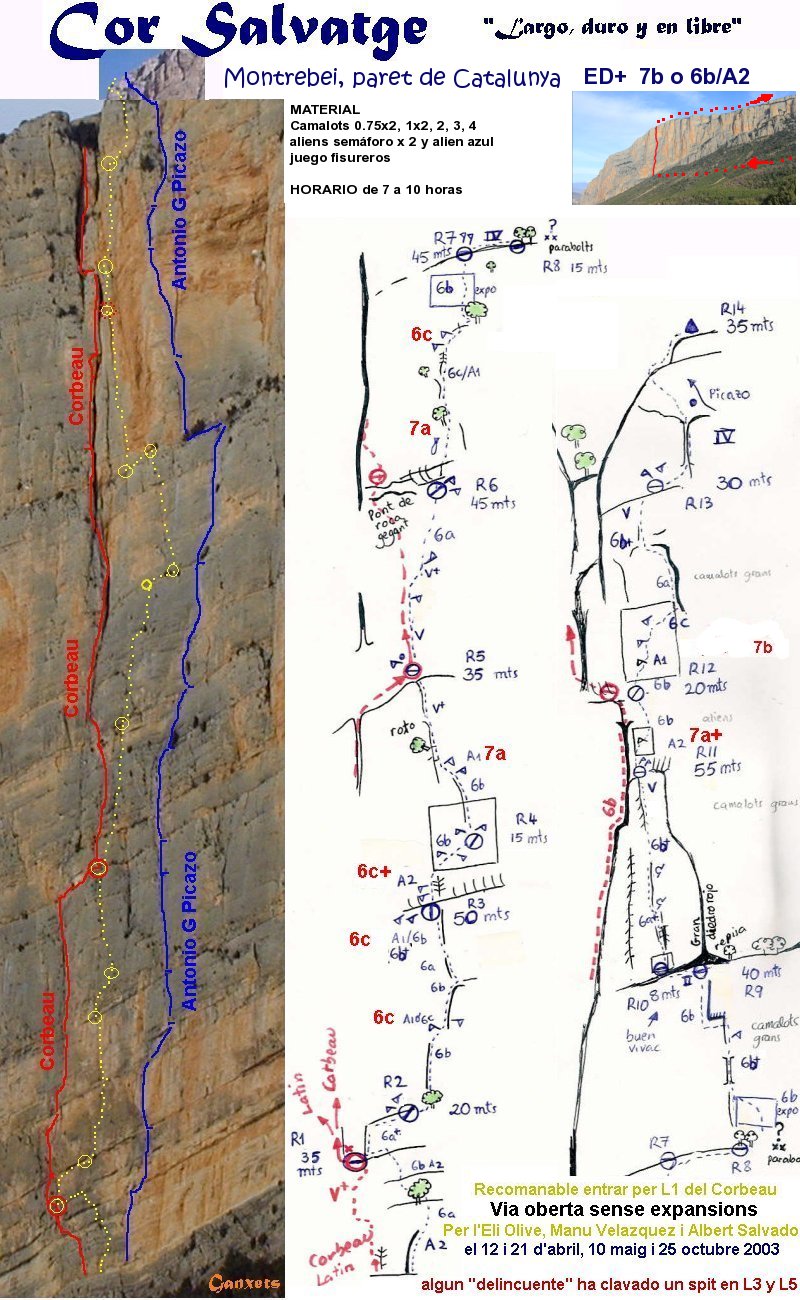 Cor Salvatge
"Largo, duro y en libre"
Montrebei, paret de Catalunya
ED+ 7b o 6b/A2
MATERIAL
Camalots 0.75x2, 1x2, 2, 3, 4
aliens semáforo x 2 y alien azul
juego fisureros
HORARIO de 7 a 10 horas
Antonio G Picazo
Corbeau
Corbeau
Antonio G Picazo
Corbeau
Ganxets
R7
IV
?
45 mts
parabolts
R8 15 mts
6b
expo
6c
6c/A1
7a
R6
45 mts
Pont de
roca
gegant
6a
V+
V
R5
35 mts
V+
roto
A1
7a
6b
R4
15 mts
6b
6c+
A2
R3
50 mts
6c
A1/6b
6b+
6a
6b
6c
A1 o 6c
6b
Latin
Corbeau
R2
20 mts
R1
35
mts
6a+
6b A2
V+
6a
Corbeau
Latin
A2
R14
35 mts
Picazo
IV
30 mts
R13
V
6b+
6a
camalots grans
6c
A1
7b
R12
20 mts
6b
6b
aliens
A2
7a+
R11
55 mts
V
camalots grans
6b
6b+
6a+
Gran
diedro rojo
repisa
R10
8 mts
II
40 mts
R9
buen
vivac
6b
camalots
grans
6b+
6b
expo
?
R7
R8
parabo
Recomanable entrar per L1 del Corbeau
Via oberta sense expansions
Per l'Eli Olive, Manu Velazquez i Albert Salvado
el 12 i 21 d'abril, 10 maig i 25 octubre 2003
algun "delincuente" ha clavado un spit en L3 y L5